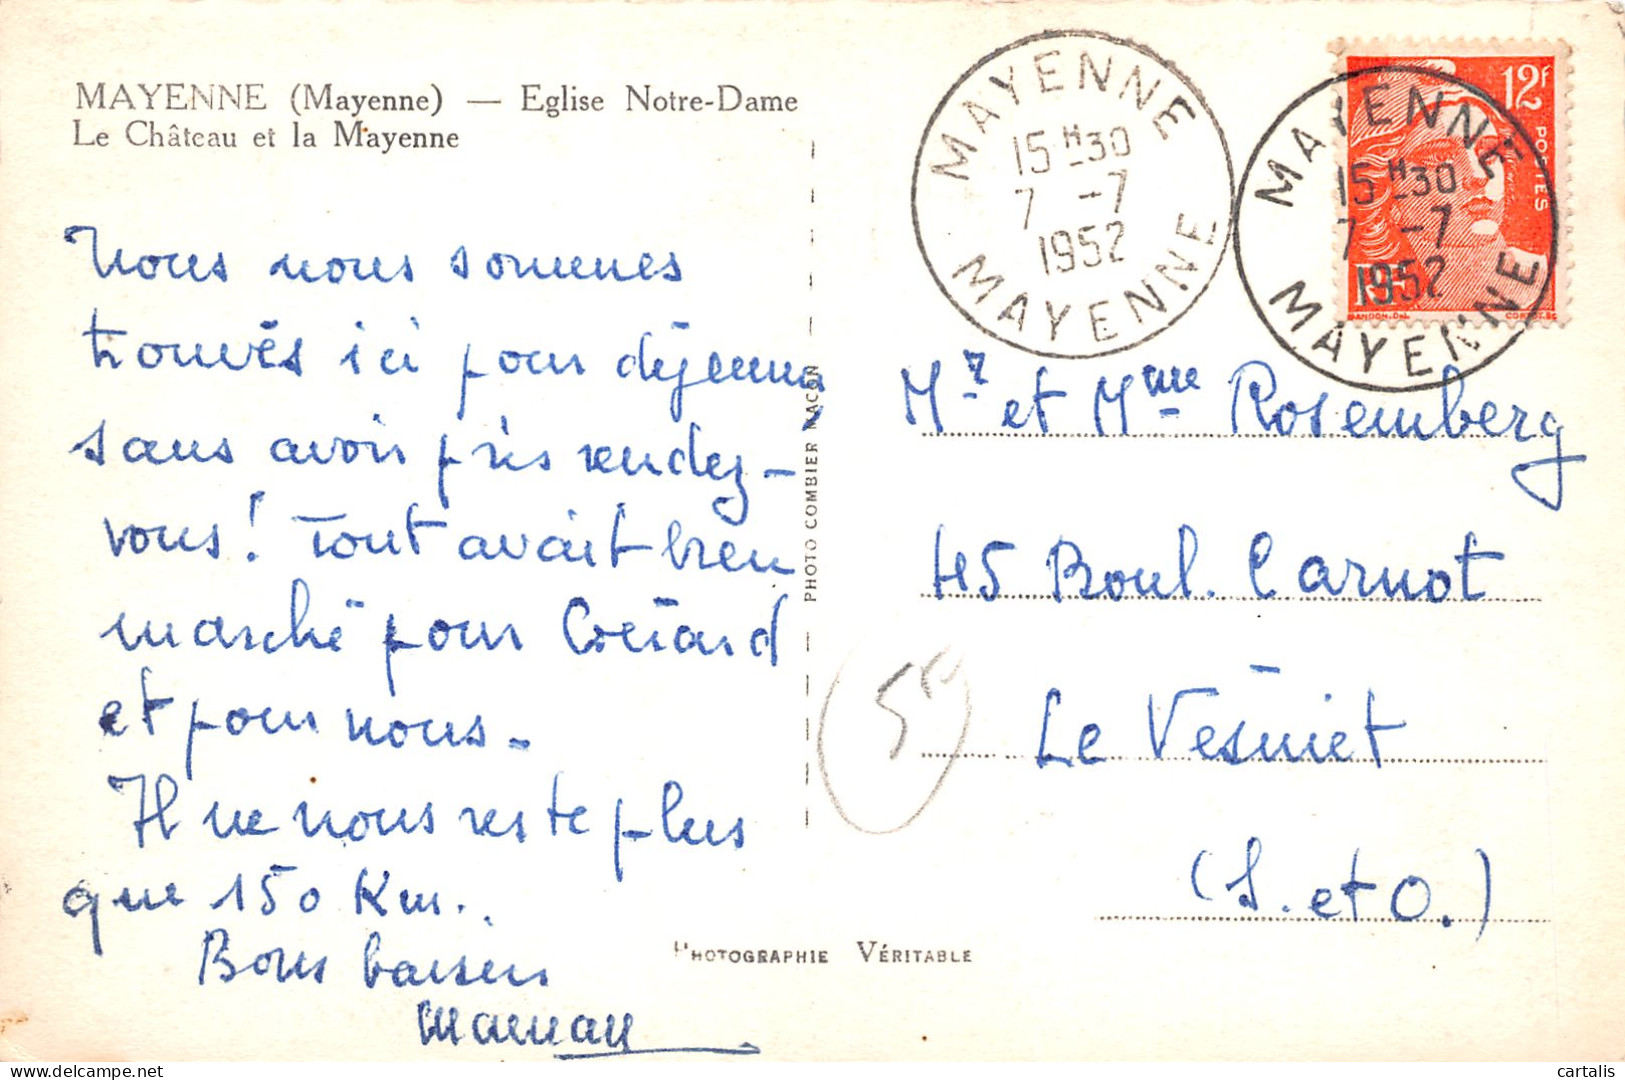 MAYENNE (Mayenne) — Eglise Notre-Dame
Le Château et la Mayenne
Nous nous sommes
trouvés ici pour déjeuner,
sans avoir pris rendez-
vous! Tout avait bien
marché pour Gérard
et pour nous.
Il ne nous reste plus
que 150 Km.
Bons baisers
Maman
PHOTO COMBIER MACON
PHOTOGRAPHIE VÉRITABLE
MAYENNE
15 H 30
7 - 7
1952
MAYENNE
MAYENNE
15 H 30
7 - 7
1952
MAYENNE
12F
POSTES
RF
Mr et Mme Rosemberg
45 Boul. Carnot
Le Vésinet
(S. et O.)
cartalis